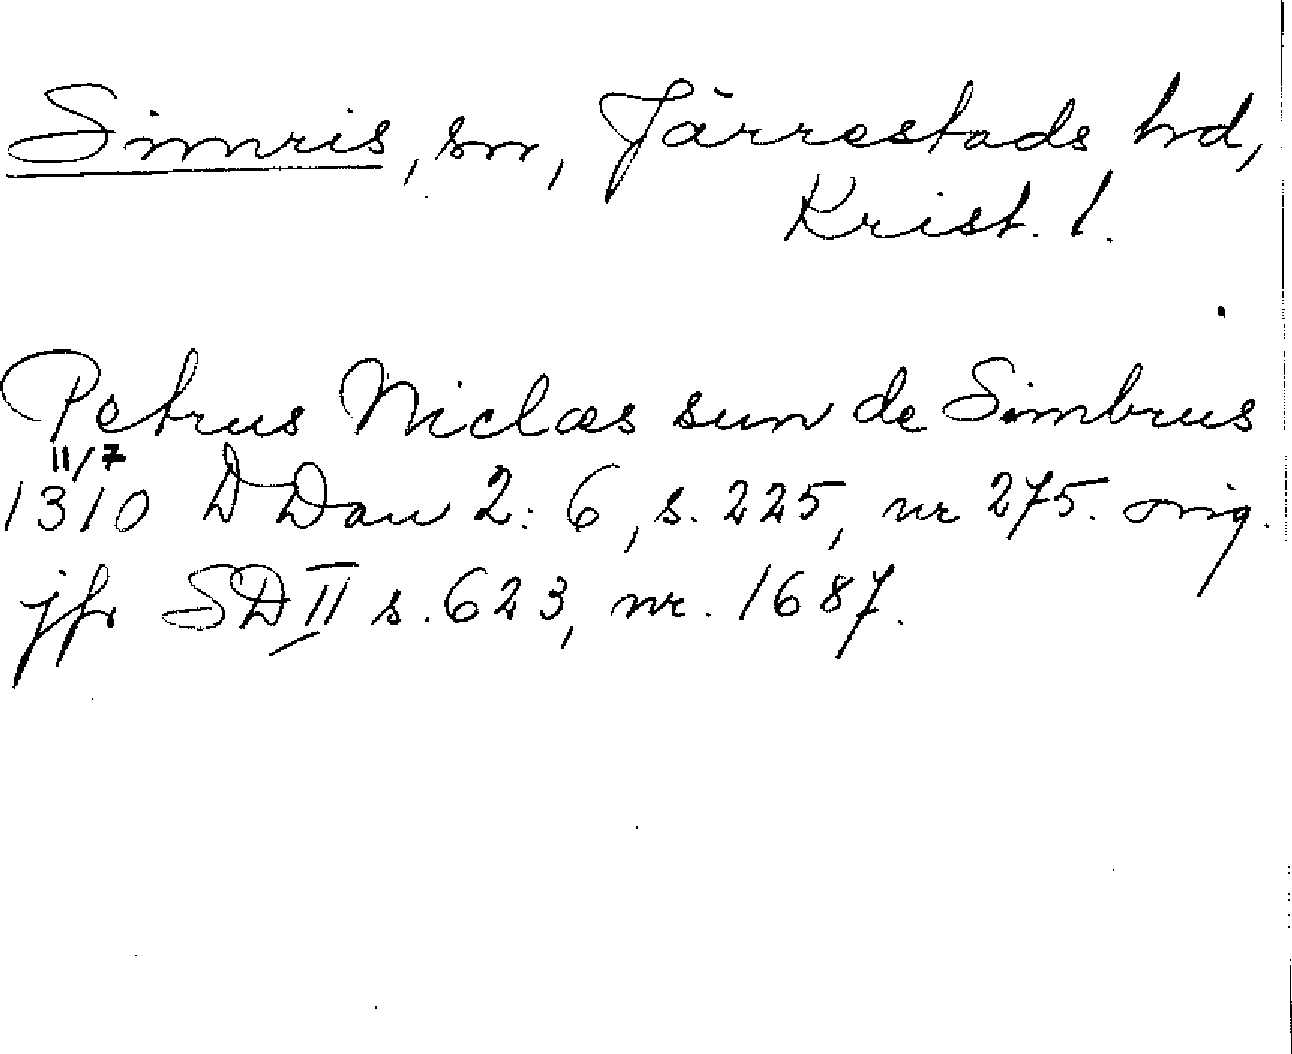 Simris, sn, Järrestads hd,
Krist. l.
Petrus Niclæs sun de Simbrus
11/7
1310 DDan 2:6, s. 225, nr 275. orig.
jfr SD II s. 623, nr. 1687.